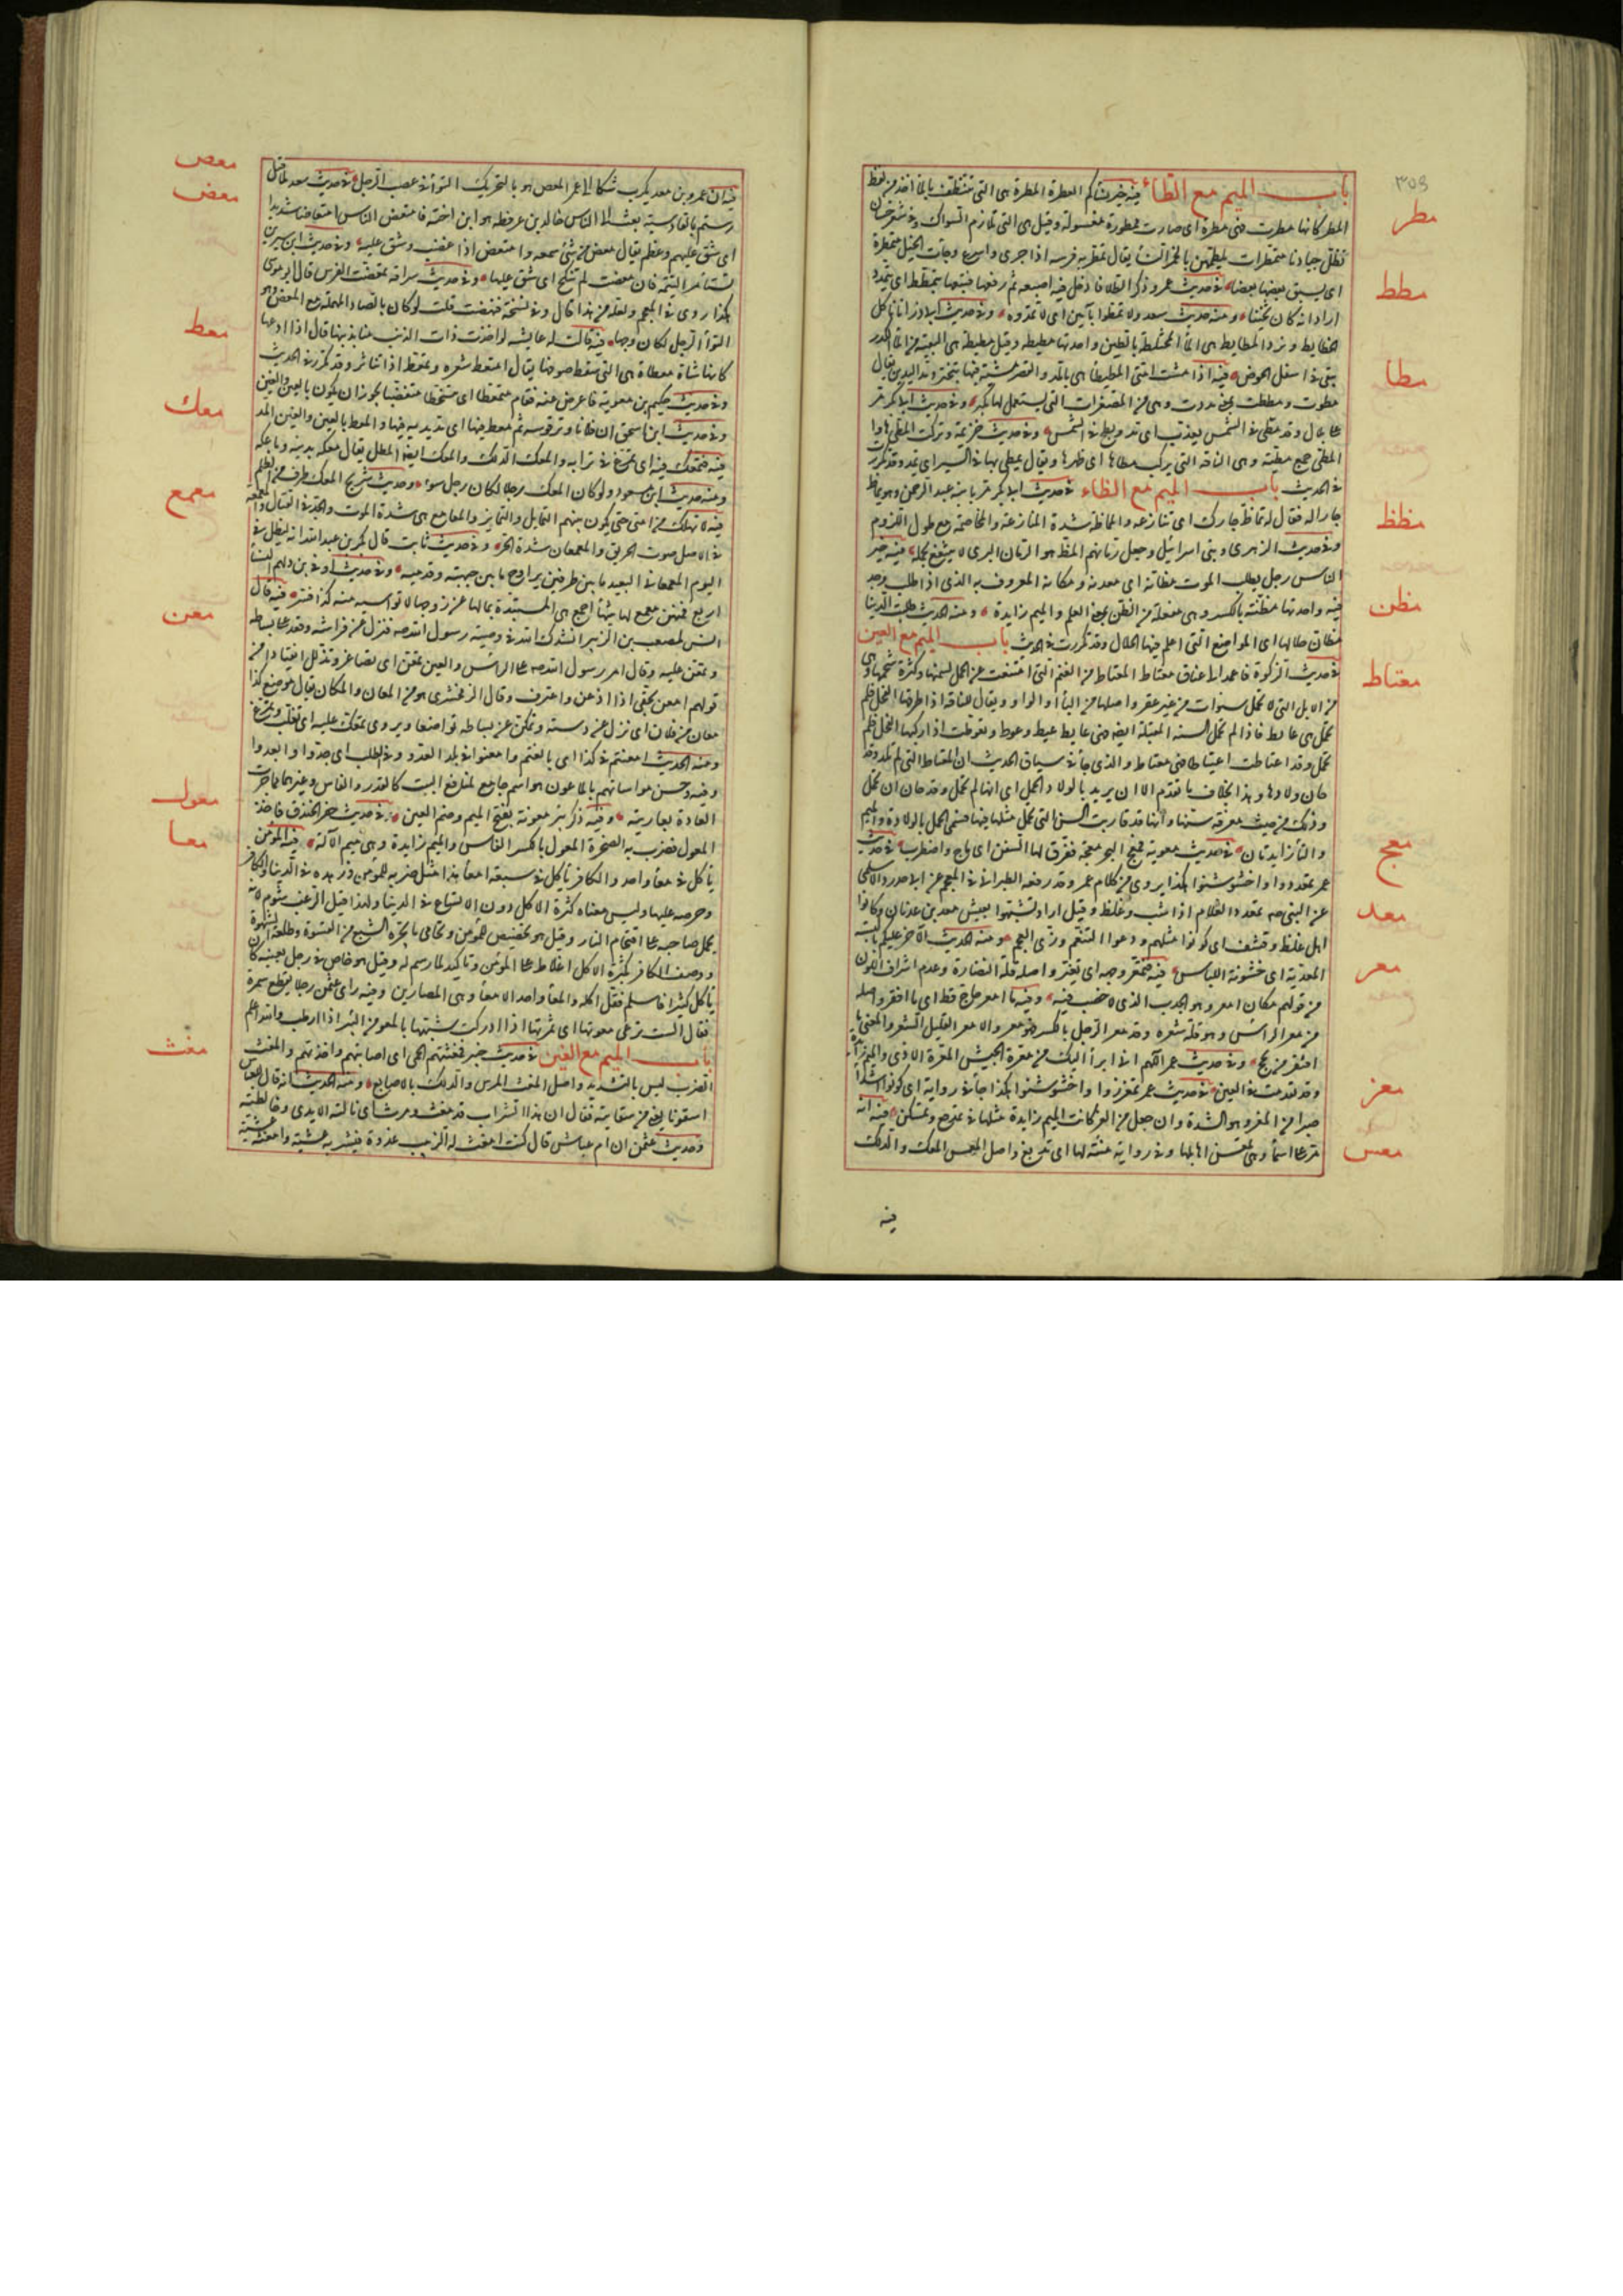 ٣٥٩
باب الميم مع الطاء فيه خير نسائكم العطرة المطرة هي التي تتنظف بالماء اخذ من لفظ
مطر
المطر كانها مطرت فهي مطرة اي صارت ممطورة مغسولة وقيل هي التي تلازم السواك وفي شعر حسان
تظل جيادنا متمطرات يلطمهن بالخمر النساء يقال تمطر به فرسه اذا جرى واسرع وجاءت الخيل متمطرة
اي يسبق بعضها بعضا في حديث عمر وذكر الطلا فادخل فيه اصبعه ثم رفعها فتبعها يتمطط اي يتمدد
مطط
اراد انه كان ثخينا ومنه حديث سعد ولا تمطوا بآمين اي لا تمدوه وفي حديث ابي ذر انا ناكل
الخطايط ونرد المطايط هي الماء المختلط بالطين واحدتها مطيطه وقيل مطيطة هي البقية من الماء الكدر
يبقى في اسفل الحوض فيه اذا مشت امتي المطيطا هي بالمد والقصر مشية فيها تبختر ومد اليدين يقال
مطا
مطوت ومططت بمعنى مددت وهي من المصغرات التي لم يستعمل لها مكبر وفي حديث ابي بكر مر
على بلال وقد مطي في الشمس يعذب اي مد وبطح في الشمس وفي حديث خزيمة وتركت المطي هارا
المطي جمع مطية وهي الناقة التي يركب مطاها اي ظهرها ويقال يمطى بها في السير اي يمد وقد تكرر
في الحديث باب الميم مع الظاء في حديث ابي بكر مر بابنه عبد الرحمن وهو يماظ
جارا له فقال له لا تماظ جارك اي لا تنازعه والمماظة شدة المنازعة والمخاصمة مع طول اللزوم
مظظ
وفي حديث الزهري وبني اسرائيل وجعل رمانهم المظ هو الرمان البري لا ينتفع بحمله فيه خير
الناس رجل يطلب الموت مظانه اي معدنه ومكانه المعروف به الذي اذا طلب وجد
فيه واحدتها مظنة بالكسر وهي مفعلة من الظن بمعنى العلم والميم زايدة ومنه الحديث طلبت الدنيا
مظن
مظان حلالها اي المواضع التي اعلم فيها الحلال وقد تكررت في الحديث باب الميم مع العين
في حديث الزكوة فاعمد الى عناق معتاط المعتاط من الغنم التي امتنعت عن الحمل لسمنها وكثرة شحمها وهي
معتاط
من الابل التي لا تحمل سنوات من غير عقر واصلها من الياء او الواو ويقال للناقة اذا طرقها الفحل فلم
تحمل هي عايط فاذا لم تحمل السنة المقبلة ايضا فهي عايط عيط وعوط وتعوطت اذا ركبها الفحل فلم
تحمل وقد اعتاطت اعتياطا فهي معتاط والذي جاء في سياق الحديث ان المعتاط التي لم تلد وقد
حان ولادها وهذا بخلاف ما تقدم الا ان يريد بالولاد الحمل اي انها لم تحمل وقد حان ان تحمل
وذلك من حيث معرفة سنها وانها قد قاربت السن التي تحمل مثلها فيها فسمى الحمل بالولادة والميم
والتاء زايدتان في حديث معوية فمعج البحر معجة تفرق لها السفن اي ماج واضطرب في حديث
معج
عمر تمعددوا واخشوشنوا هكذا يروى من كلام عمر وقد رفعه الطبراني في المعجم عن ابي حدرد الاسلمي
عن النبي صه تمعدد الغلام اذا شب وغلظ وقيل اراد تشبهوا بعيش معد بن عدنان وكانوا
معد
اهل غلظ وقشف اي كونوا مثلهم ودعوا التنعم وزي العجم ومنه الحديث الاخر عليكم باللبسة
المعدية اي خشونة اللباس فيه فتمعر وجهه اي تغير واصله قلة النضارة وعدم اشراق اللون
معر
من قولهم مكان امعر وهو الجدب الذي لا خصب فيه وفيه ما امعر حاج قط اي ما افتقر واصله
من معر الراس وهو قلة شعره وقد معر الرجل بالكسر فهو معر والامعر القليل الشعر والمعنى ما
افتقر من يحج وفي حديث عمر اللهم اني ابرأ اليك من معرة الجيش المعرة الاذى والميم زايدة
وقد تقدمت في العين في حديث عمر تمعززوا واخشوشنوا هكذا جاء في رواية اي كونوا اشداء
معز
صبرا من المعز وهو الشدة وان جعل من العز كانت الميم زايدة مثلها في تمدرع وتمسكن فيه انه
مر على اسماء وهي تمعس اهابا لها وفي رواية منيئة لها اي تدبغ واصل المعس المعك والدلك
معس
فيه
فيه ان عمرو بن معد يكرب شكا الى عمر المعص هو بالتحريك التواء في عصب الرجل في حديث سعد لما قتل
معص
معض
رستم بالقادسية بعث الى الناس خالد بن عرفطة هو ابن اخته فامتعض الناس امتعاضا شديدا
اي شق عليهم وعظم يقال معض من شيء سمعه وامتعض اذا غضب وشق عليه وفي حديث ابن سيرين
تستأمر اليتيمة فان معضت لم تنكح اي شق عليها وفي حديث سراقة تمعضت الفرس قال ابو موسى
هكذا روي في المعجم ولعله من هذا قال وفي نسخة فنهضت قلت لو كان بالصاد المهملة من المعص وهو
التواء الرجل لكان وجها فيه قالت له عايشه لو اخذت ذات الذنب منا بذنبها قال اذا ادعها
معط
كانها شاة معطاء هي التي سقط صوفها يقال امتعط شعره وتمعط اذا تناثر وقد تكرر في الحديث
وفي حديث حكيم بن معوية فاعرض عنه فقام متمعطا اي متسخطا متغضبا يجوز ان يكون بالعين والغين
وفي حديث ابن اسحق ان فلانا وتر قوسه ثم معط فيها اي مد يديه فيها والمعط بالعين والغين المد
معك
فيه فتمعك فيه اي تمرغ في ترابه والمعك الدلك والمعك ايضا المطل يقال معكه بدينه وماعكه
ومنه حديث ابن مسعود لو كان المعك رجلا لكان رجل سوء وحديث شريح المعك طرف من الظلم
فيه لا تهلك امتي حتى يكون بينهم التمايل والتمايز والمعامع هي شدة الموت والجد في القتال والمعمعة
معمع
في الاصل صوت الحريق والمعمعان شدة الحر وفي حديث ثابت قال بكر بن عبد الله انه ليظل في
اليوم المعمعاني البعيد ما بين طرفين يراوح ما بين جبهته وقدميه وفي حديث اوفى بن دلهم النساء
اربع فمنهن معمع لها شيئها اجمع هي المستبدة بمالها عن زوجها لا تواسيه منه كذا فسر فيه قال
معن
انس لمصعب بن الزبير انشدك الله في وصية رسول الله صه فنزل عن فراشه وقعد على بساطه
وتمعن عليه وقال امر رسول الله صه على الراس والعين تمعن اي تصاغر وتذلل انقيادا من
قولهم امعن بحقي اذا اذعن واعترف وقال الزمخشري هو من المعان والمكان يقال موضع كذا
معان من فلان اي نزل عن دسته وتمكن على بساطه تواضعا ويروى تمعك عليه اي تقلب وتمرغ
ومنه الحديث امعنتم في كذا اي بالغتم وامعنوا في بلد العدو وفي الطلب اي جدوا وابعدوا
وفيه وحسن مواساتهم بالماعون هو اسم جامع لمنافع البيت كالقدر والفاس وغيرهما مما جرت
العادة بعاريته وفيه ذكر بئر معونة بفتح الميم وضم العين في حديث حفر الخندق فاخذ
معول
المعول فضرب به الصخرة المعول بالكسر الفاس والميم زايدة وهي ميم الآلة فيه المؤمن
معا
يأكل في معاء واحد والكافر يأكل في سبعة امعاء هذا مثل ضربه للمؤمن وزهده في الدنيا والكافر
وحرصه عليها وليس معناه كثرة الاكل دون الاتساع في الدنيا ولهذا قيل الرغب شؤم لانه
يحمل صاحبه على اقتحام النار وقيل هو تخصيص للمؤمن وتحامي ما يجره الشبع من القسوة وطاعة الشهوة
ووصف الكافر بكثرة الاكل اغلاظ على المؤمن وتأكيد لما رسم له وقيل هو خاص في رجل بعينه كان
يأكل كثيرا فاسلم فقل اكله والمعاء واحد الامعاء وهي المصارين وفيه راى عثمن رجلا يقطع سمرة
فقال الست ترعى معوتها اي ثمرتها اذا ادركت شبهها بالمعو من البسر اذا ارطب والله اعلم
باب الميم مع الغين في حديث خيبر فمغثتهم الحمى اي اصابتهم واخذتهم والمغث
مغث
الضرب ليس بالشديد واصل المغث المرس والدلك بالاصابع ومنه الحديث انه قال للعباس
اسقونا يعني من سقايته فقال ان هذا الشراب قد مغث ومرث اي نالته الايدي وخالطته
وحديث عثمن ان ام عياش قالت كنت امغث له الزبيب غدوة فيشربه عشية وامغثه عشية